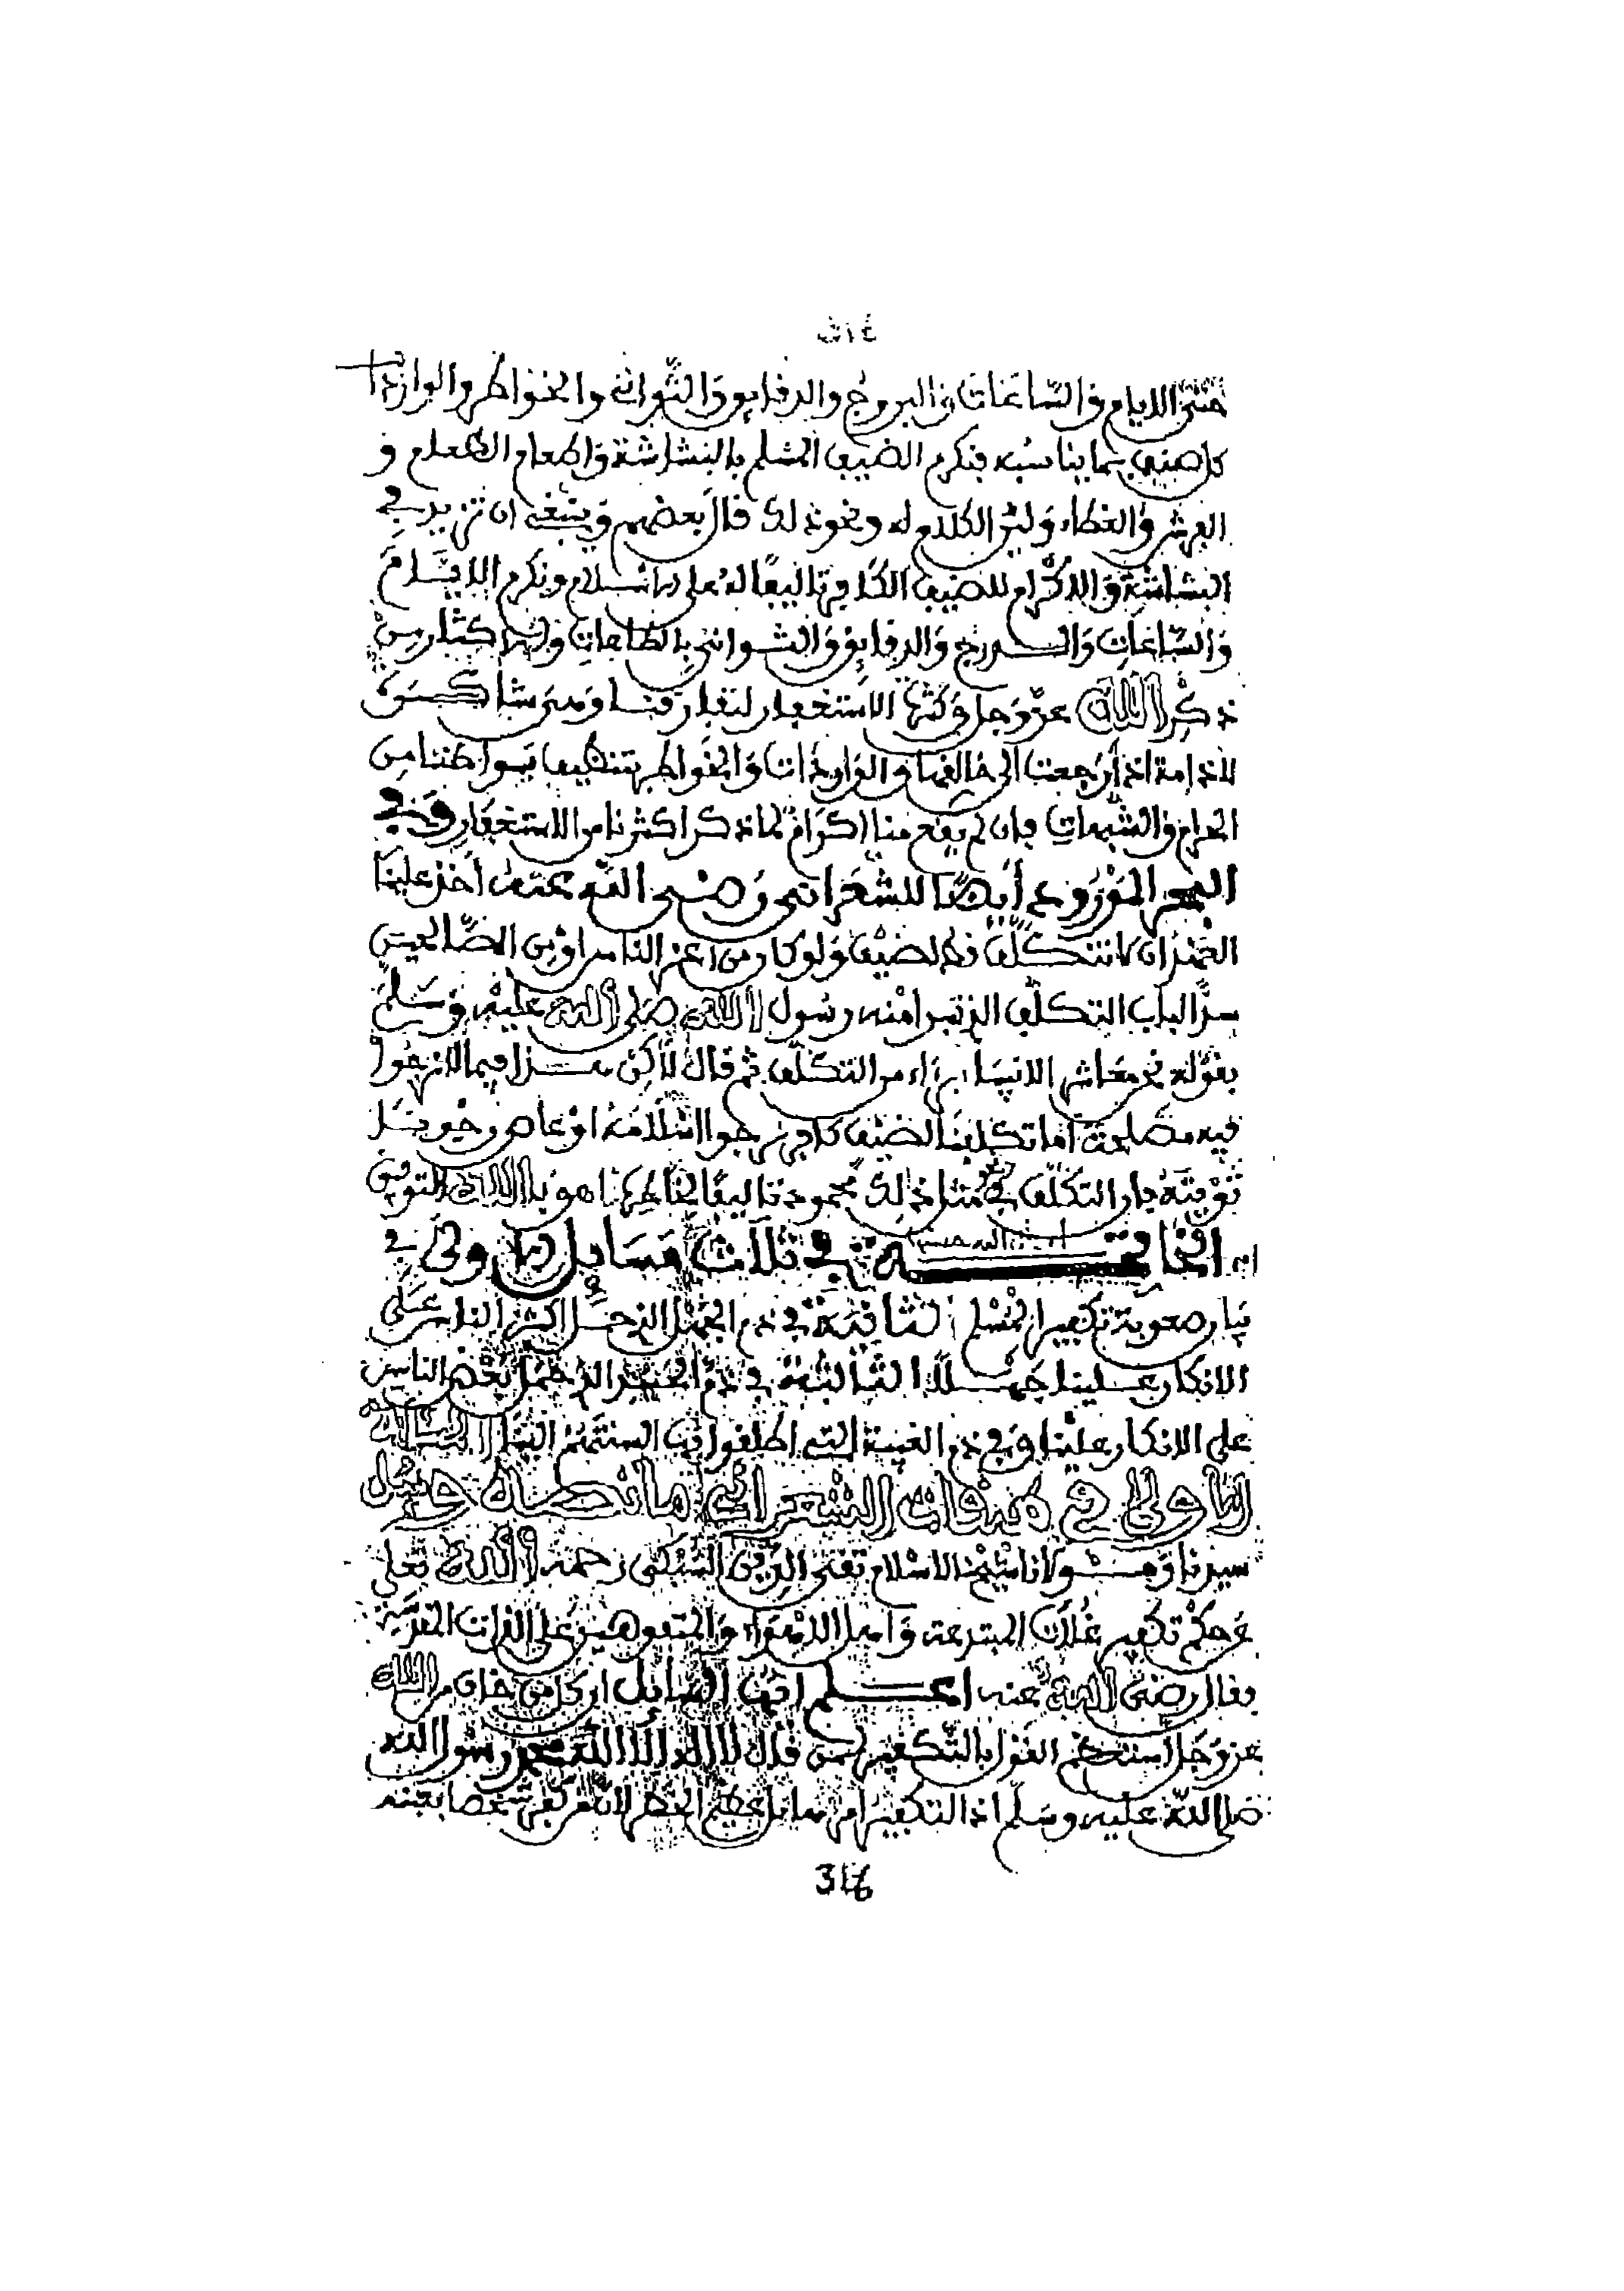 ٣١٤
حتى الايام والساعات والبروج والدقايق والثواني والخواطر والواردات
كل صنف بما يناسبه فنكرم الضيف المسلم بالبشاشة واطعام الطعام و
الفرش والغطاء ولين الكلام له ونحو ذلك قال بعضهم وينبغي ان تزيد في
البشاشة والاكرام للضيف الكافر تاليفا له على الاسلام ونكرم الايام
والساعات والدرج والدقايق والثواني بالطاعات والاكثار من
ذكر الله عز وجل وكثرة الاستغفار لتفارقنا وهي شاكرة
اذا رجعت الى خالقها والواردات والخواطر بتنظيف بواطننا من
الحرام والشبهات فان لم يقع منا اكرام لما ذكر اكثرنا من الاستغفار وفي
البحر المورود أيضا للشعراني رضي الله عنه أخذ علينا
العهد ان لا نتكلف قط لضيف ولو كان من أعز الناس او من الصالحين
سدا لباب التكلف الذي تبرأ منه رسول الله صلى الله عليه وسلم
بقوله نحن معاشر الانبياء برءاء من التكلف ثم قال لاكن هذا فيما لا نرجوا
فيه مصلحة اما تكلفنا لضيف كافر نرجوا اسلامه او عاص نرجو
توبته فان التكلف في مثل ذلك محمود تاليفا لخاطرهما هو بالله التوفيق
الخاتمة في ثلاث مسايل الاولى في
بيان صعوبة تكفير المسلم الثانية في ذم الجهل الذي حمل اكثر الناس على
الانكار علينا جهلا الثالثة في ذم الحسد الذي حمل بعض الناس
على الانكار علينا وفي ذم الغيبة التي اطلقوا فيها السنتهم الينا المسألة
الاولى في طبقات الشعراني ما نصه وسئل
سيدنا ومولانا شيخ الاسلام تقي الدين السبكي رحمه الله تعالى
عن حكم تكفير غلاة المبتدعة واهل الاهواء والمتفوهين على الذات المقدسة
فقال رضي الله عنه اعلم ايها السائل ان كل من خاف من الله
عز وجل استعظم القول بالتكفير لمن قال لا اله الا الله محمد رسول الله
صلى الله عليه وسلم اذ التكفير امر هايل عظيم الخطر لان من كفر شخصا بعينه
314